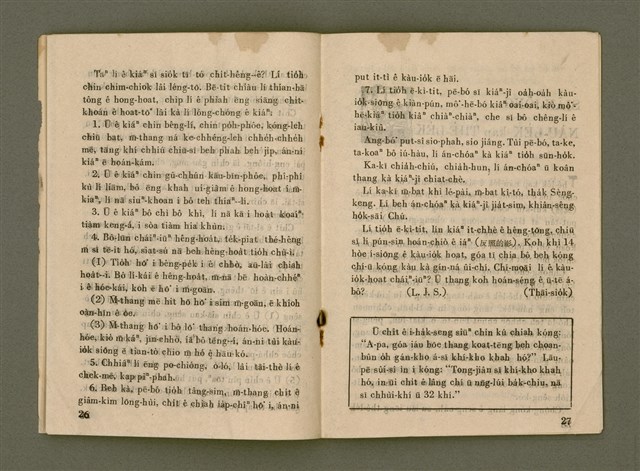 Taⁿ lí ê kiáⁿ sī siók tī tó chi̍t-hêng--ê? Lí tio̍h
chin chim-chiok lâi lêng-tō. Bē-tit chiàu lí thian-hā
tông ê hong-hoat, chip lí ê phiah ēng siāng chi̍t-
khoán ê hoat-tō͘ lâi kà lí lóng-chóng ê kiáⁿ:
1. Ū ê kiáⁿ chin bêng-lī, chin phòh-phòe, kóng-leh
chiū bat, m̄-thang ná ke-chhéng-leh chhéh-chhéh
mē, tăng khí chhiú chia-sī beh phah beh jip, án-ni
kiáⁿ ê hoán-kám.
2. Ū ê kiáⁿ gû-chhún kāu-bīn-phôe, phì-phí
kú lí liām, bô ēng khah ui-giâm ê hong-hoat i m̄-
kiaⁿ, lí nā siuⁿ-khoan i bô teh thiaⁿ-lí.
3. Ū ê kiáⁿ bô chì bô khì, lí nā kā i hoah koaiⁿ
tiām keng-á, i sòa tiām hia khùn.
4. Bô-lūn chāi-iūⁿ hêng-hoat, te̍k-piat thé-hêng
m̄ sī tē-it hó, siat-sú nā beh hêng-hoat tio̍h chù-ì:
(1) Tio̍h hō͘ i bêng-pe̍k i ê chhò, au-lâi chiah
hoat-i. Bô lí-kái ê hêng-hoat, m̄-nā bē hoàn-chhéⁿ
i ê hóe-kái, koh ē hō͘ i m̄-goān.
(2) M̄-thang mē hit hō hō͘ i sim m̄-goān, ē khioh
oàn-hīn ê ōe.
(3) M̄ thang hō͘ i bô lō͘ thang hoán-hóe. Hoán-
hóe, kiò m̄-káⁿ, jīn-chhò, iā bô tēng-i, án-ni tùi kàu-
io̍k siōng ê tian-tò chio m̄ hó ê hāu-kó.
5. Chhiáⁿ lí eng po-chióng, o-ló, lâi tāi-thè lí ê
chek-mē, kap pàⁿ-phah.
6. Beh kà, pē-bō tio̍h tâng-sim, m̄-thang chi̍t ê
giâm-kim lóng-húi, chi̍t ê chiah lap-chîⁿ hō͘ i, án-ni
26
put it-tì ê kàu-io̍k ē hāi.
7. Lí tio̍h ē-kì-tit, pē-bó sī kiáⁿ-jî oáh-oáh kàu-
io̍k-siōng ê kiàn-pún, mô͘-hē-bó kiáⁿ oai-oai, kiò mô͘-
hē-kiáⁿ tio̍h kiáⁿ chiàⁿ-chiàⁿ, che sī bô chêng-lí ê
iau-kiû.
Ang-bó͘ put-sî sio-phah, sio jiâng. Tùi pē-bó, ta-ke,
ta-koaⁿ bô iú-hàu, lí án-chóaⁿ kà kiáⁿ tio̍h sūn-hók.
Ka-kī chiah-chiú, chiah-hun, lí án-chóaⁿ ū koân
thang kà kiáⁿ-jî chiat-chè.
Lí ka-kī m̄-bat khì lé-pài, m̄-bat kî-tó, thák Sèng-
keng. Lí beh án-chóaⁿ kà kiáⁿ-jî jiat-sim, khiân-sêng
ho̍k-sāi Chú.
Lí tio̍h ē-kì-tit, lín kiáⁿ it-chhè ê hêng-tōng, chiū
sī lí pún-sin hoán-chiò ê iáⁿ (反照的影). Koh khì 14
hòe í-siōng ê kàu-io̍k hoat, góa ū chia bô beh kóng
chí-ū kóng kàu kà gín-ná úi-chí. Chí-moāi lí ê kàu-
io̍k-hoat cháiⁿ-iūⁿ? Ū thang koh hoán-séng ê ū-tē á-
bô? (L. J. S.) (Thāi-sio̍k)
Ū chi̍t ê i-hák-seng siūⁿ chin kú chiah kóng:
"A-pa, góa iáu bóe thang koat-tēng beh choan-
bûn o̍h gán-kho á-sī khí-kho khah hó?" Lāu-
pē sûi-sî ìn i kóng: "Tong-jiân sī khí-kho khah
hó, in-ūi chi̍t ê lâng chí ū nn̄g-lúi bák-chiu, nā
sī chhùi-khí ū 32 khí."
27